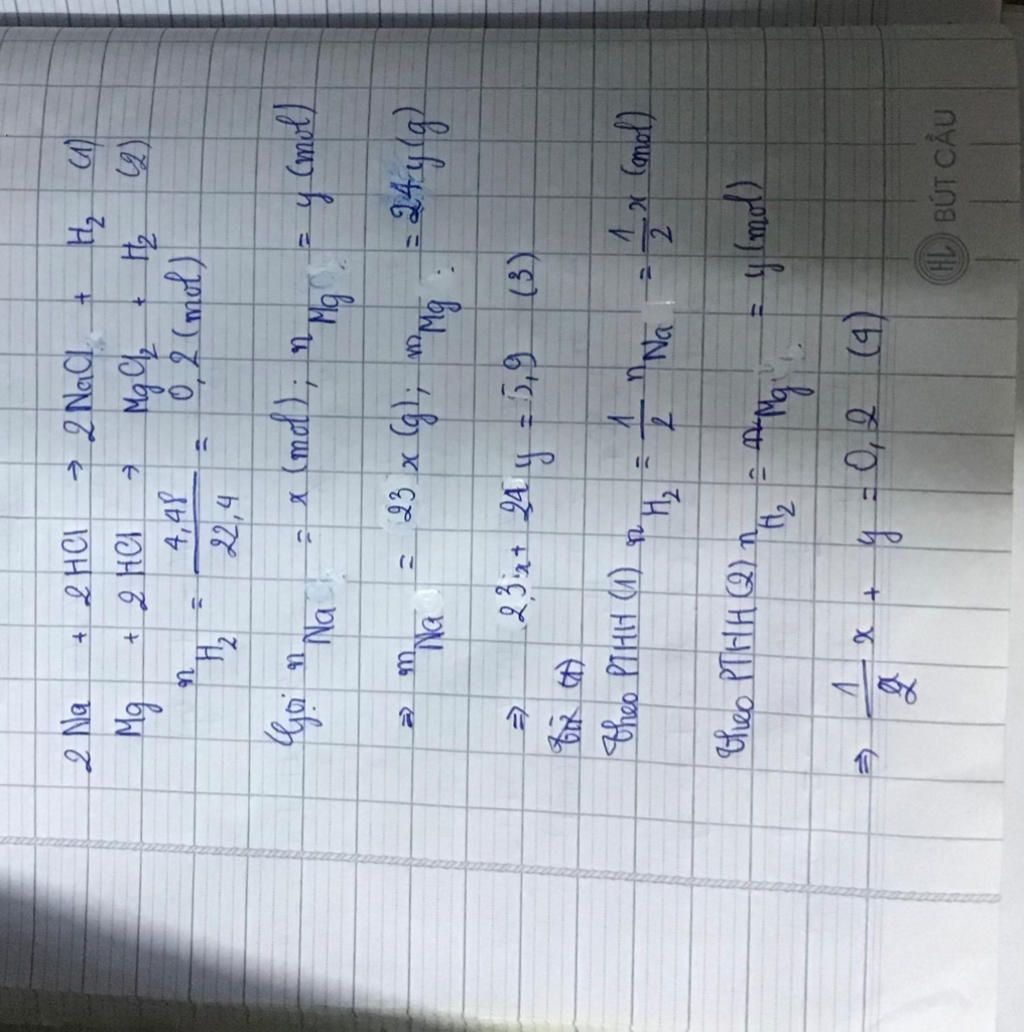 2 Na + 2 HCl → 2 NaCl + H2 (1)
Mg + 2 HCl → MgCl2 + H2 (2)
nH2 = 4,48/22,4 = 0,2 (mol)
Gọi nNa = x (mol); nMg = y (mol)
⇒ mNa = 23 x (g); mMg = 24 y (g)
⇒ 23x + 24 y = 5,9 (3)
Từ (1)
Theo PTHH (1) nH2 = 1/2 nNa = 1/2 x (mol)
Theo PTHH (2) nH2 = nMg = y (mol)
⇒ 1/2 x + y = 0,2 (4)
BÚT CẦU